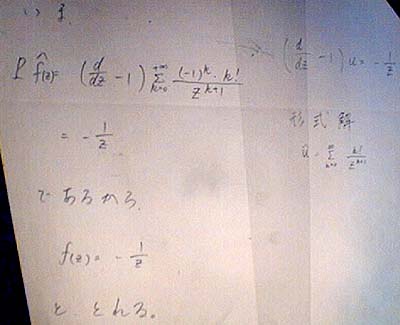 P f̂(z) = (d/dz - 1) Σ_{k=0}^{+∞} (-1)^k · k! / z^{k+1}
= - 1/z
であるから、
f(z) = - 1/z
と とれる。
(d/dz - 1) u = - 1/z
形式解
û = Σ_{k=0}^{∞} k! / z^{k+1}